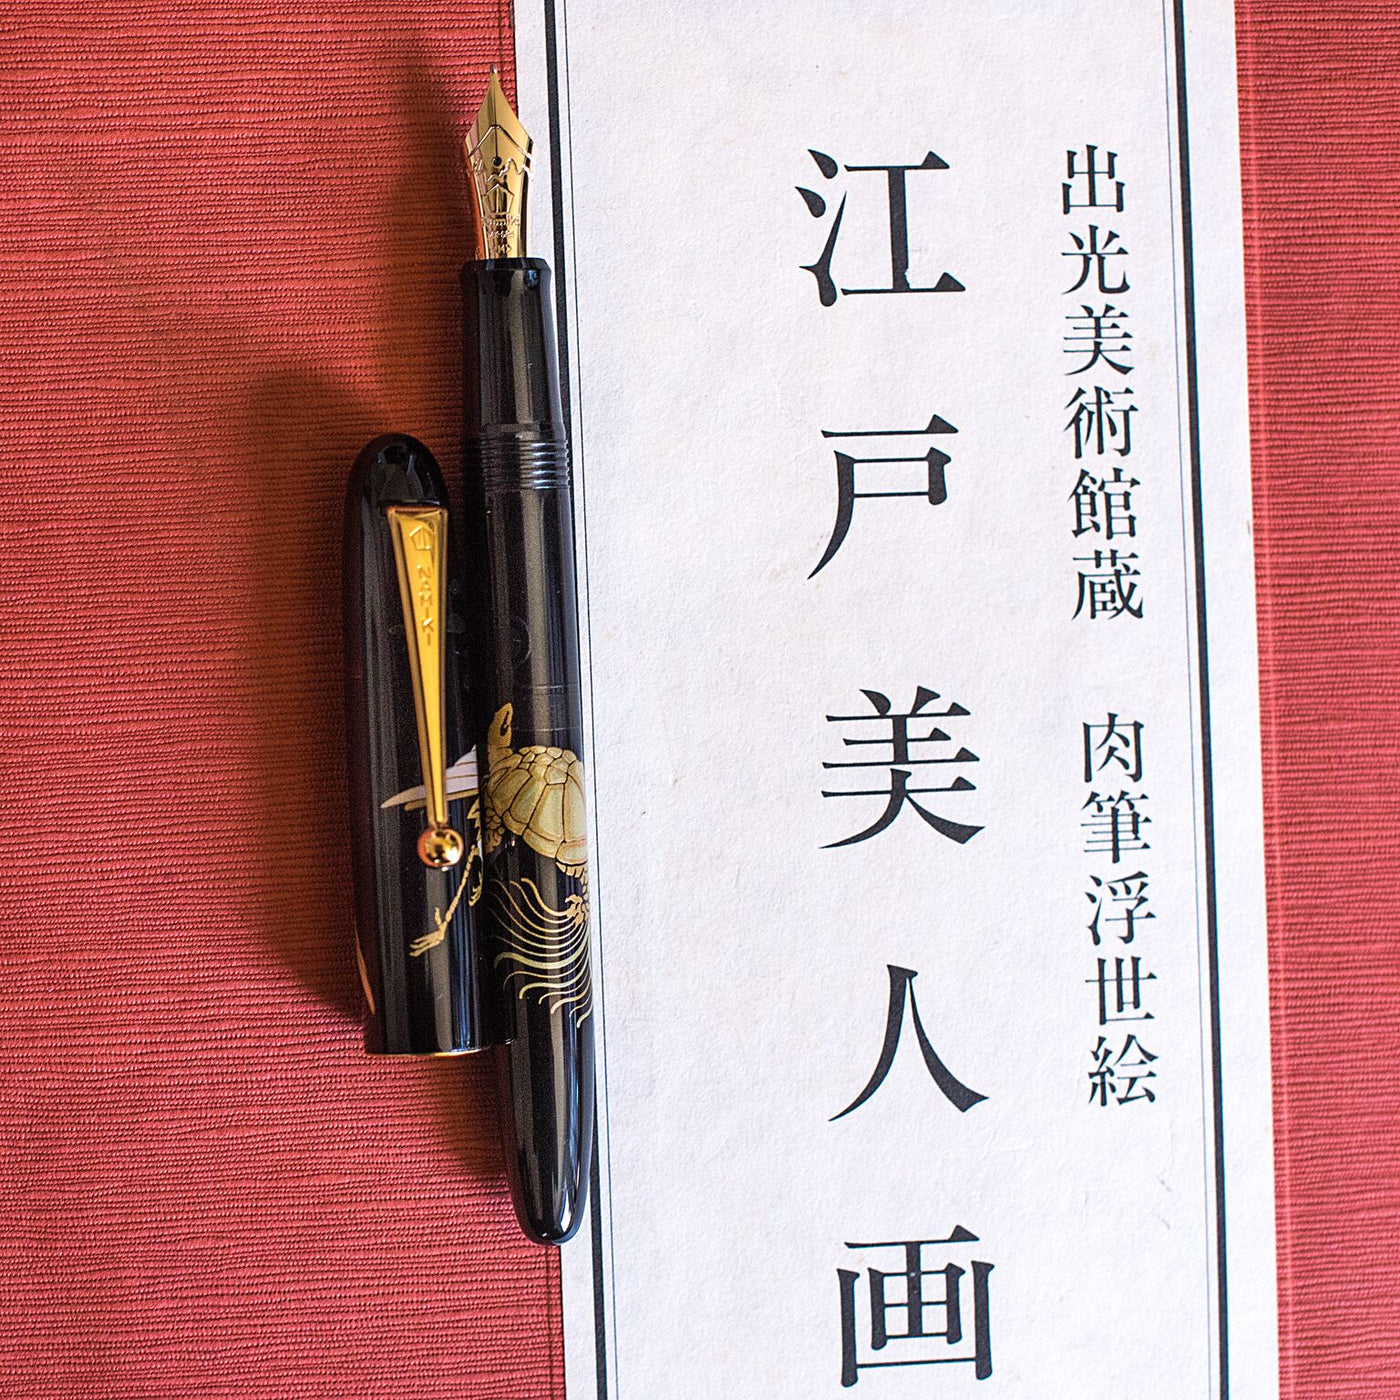 出光美術館蔵 肉筆浮世絵
江戸美人画
NAMIKI